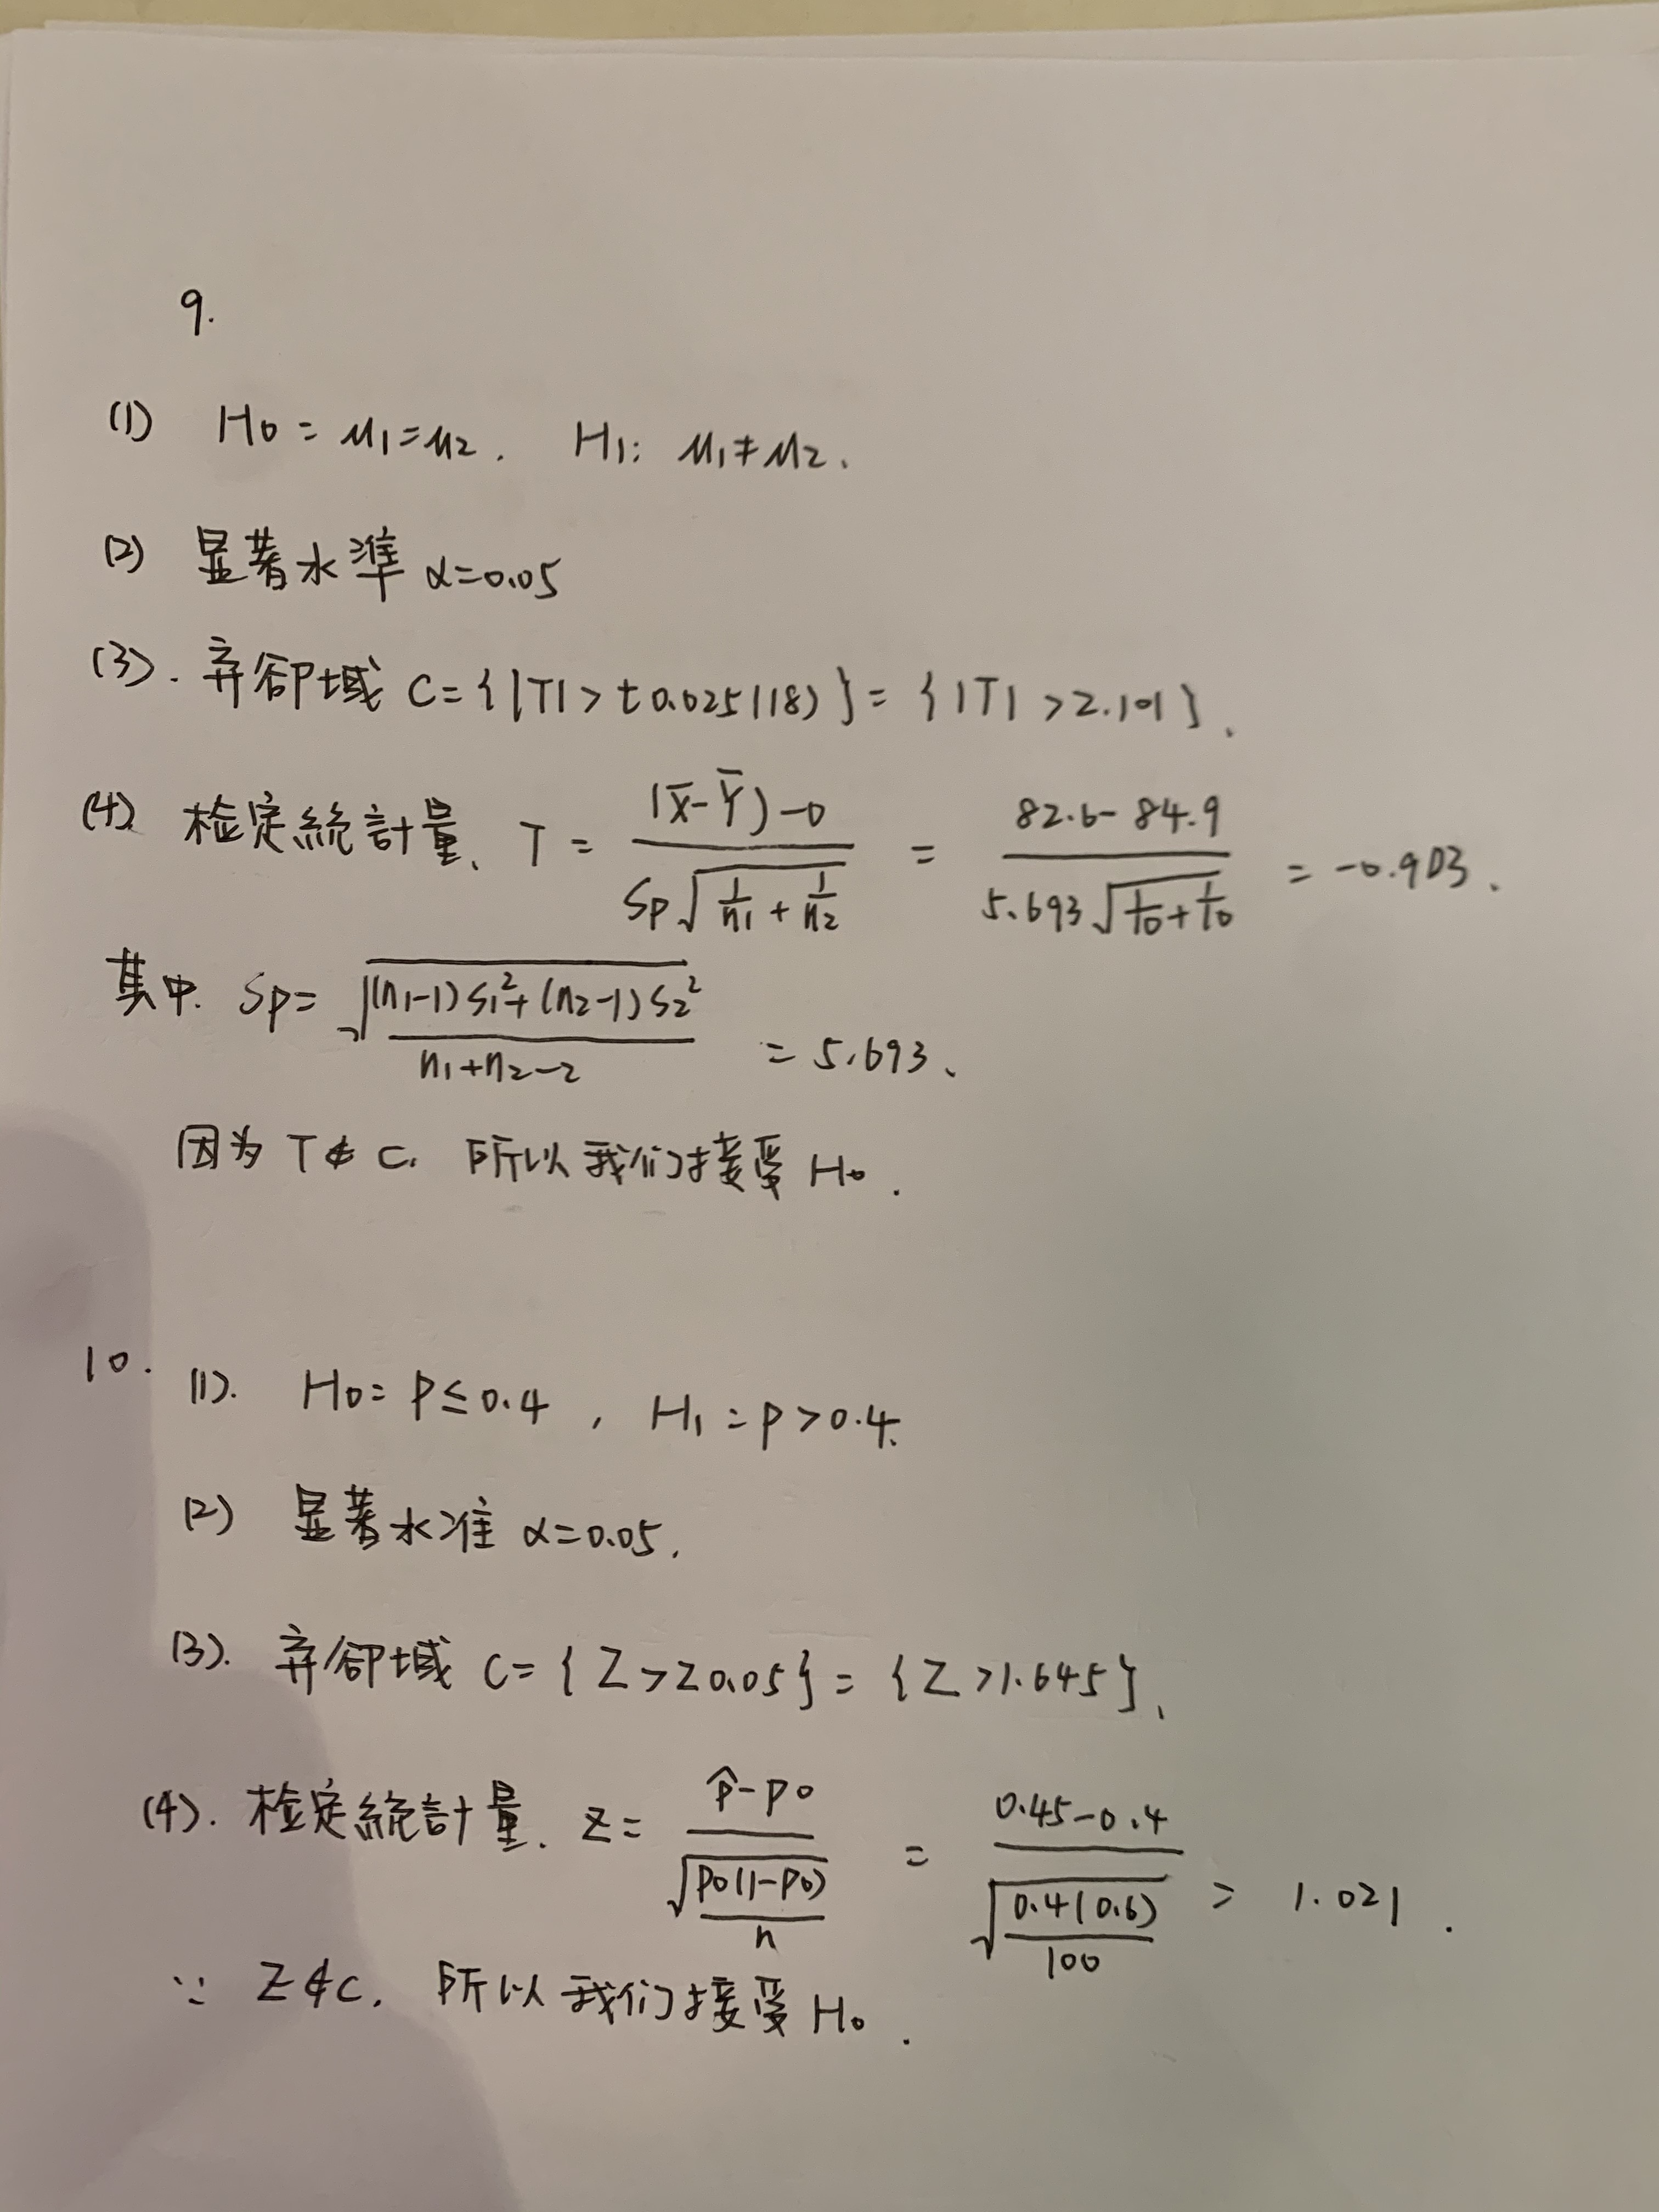 9.
(1) H0 = μ1=μ2. H1: μ1≠μ2.
(2) 显著水準 α=0.05
(3). 弃卻域 C={|T|>t0.025(18)}={|T|>2.101}.
(4) 检定統計量. T = ((x̄-Ȳ)-0)/(Sp√(1/n1+1/n2)) = (82.6-84.9)/(5.693√(1/10+1/10)) = -0.903.
其中. Sp= √(((n1-1)S1²+(n2-1)S2²)/(n1+n2-2)) = 5.693.
因为 T∉C. 所以我们接受 H0.
10. (1). H0= P≤0.4, H1=P>0.4.
(2) 显著水准 α=0.05.
(3). 弃卻域 C={Z>Z0.05}={Z>1.645}.
(4). 检定統計量. Z= (p̂-p0)/√(p0(1-p0)/n) = (0.45-0.4)/√(0.4(0.6)/100) = 1.021.
∵ Z∉C. 所以我们接受 H0.